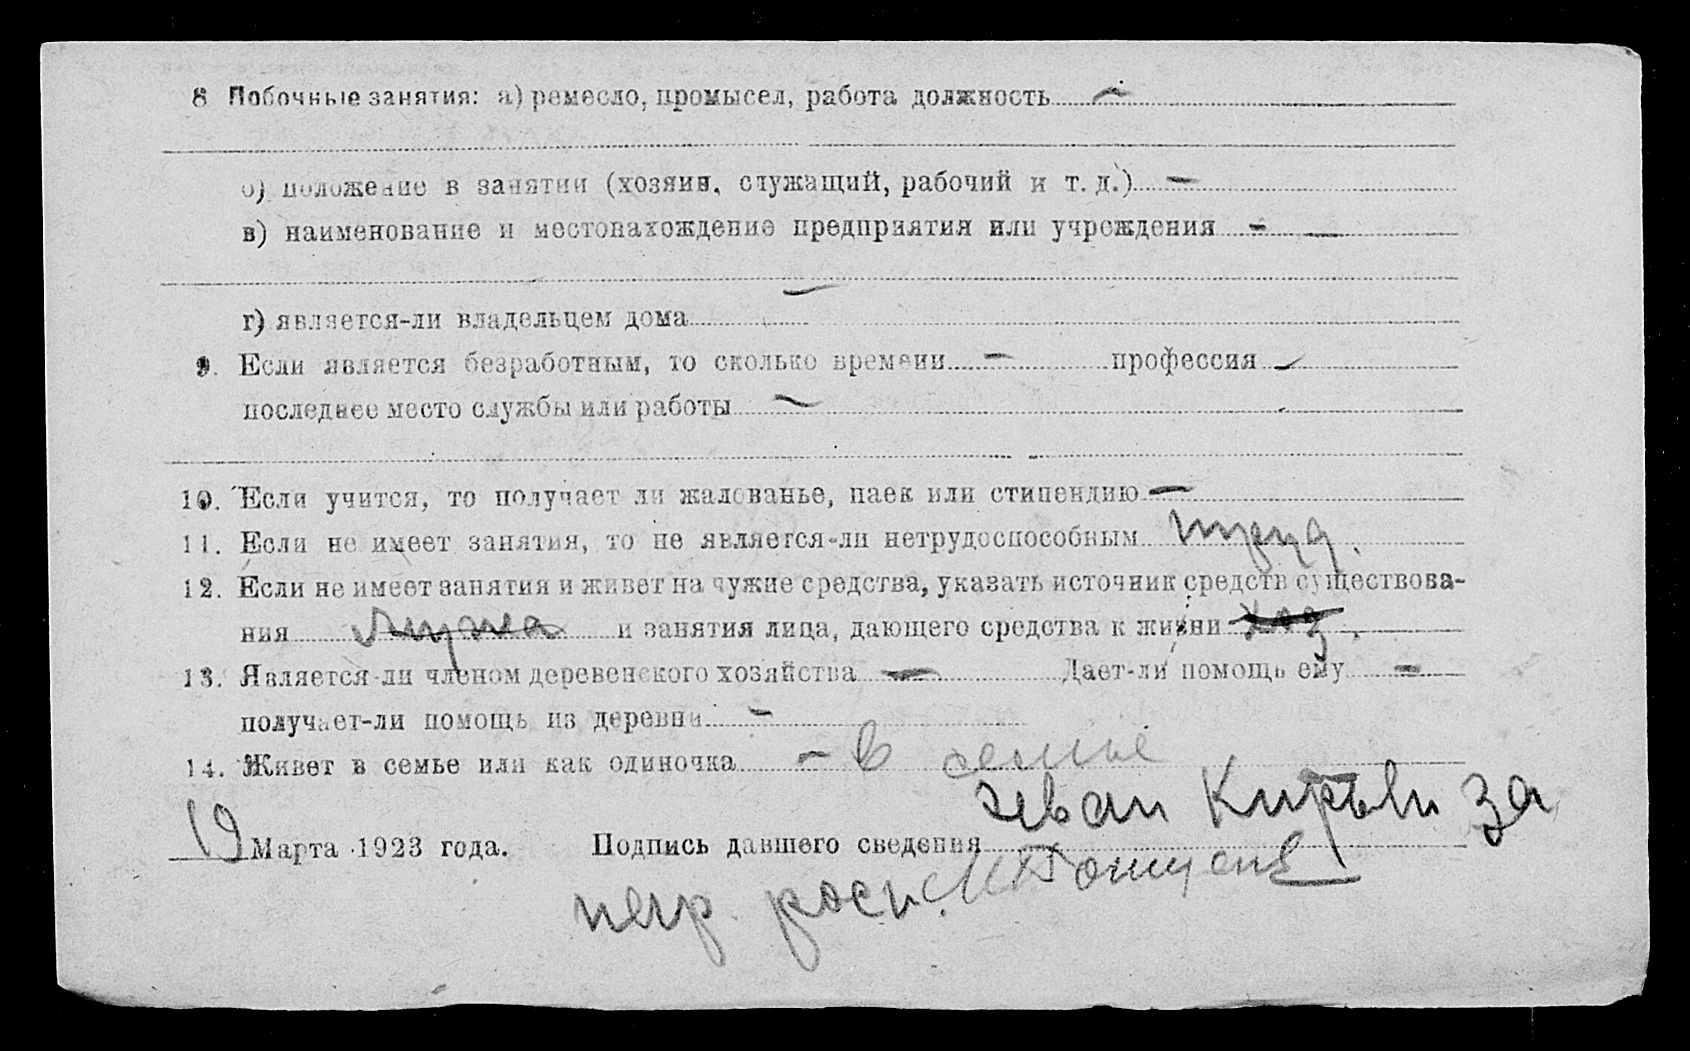 8 Побочные занятия: а) ремесло, промысел, работа должность —
б) положение в занятии (хозяин, служащий, рабочий и т. д.) —
в) наименование и местонахождение предприятия или учреждения - —
г) является-ли владельцем дома —
9. Если является безработным, то сколько времени — профессия —
последнее место службы или работы —
10. Если учится, то получает ли жалованье, паек или стипендию —
11. Если не имеет занятия, то не является-ли нетрудоспособным труд.
12. Если не имеет занятия и живет на чужие средства, указать источник средств существова-
ния мужа и занятия лица, дающего средства к жизни хоз.
13. Является-ли членом деревенского хозяйства — Дает-ли помощь ему —
получает-ли помощь из деревни —
14. Живет в семье или как одиночка — в семье
Иван за
19 Марта 1923 года. Подпись давшего сведения
негр. расп.